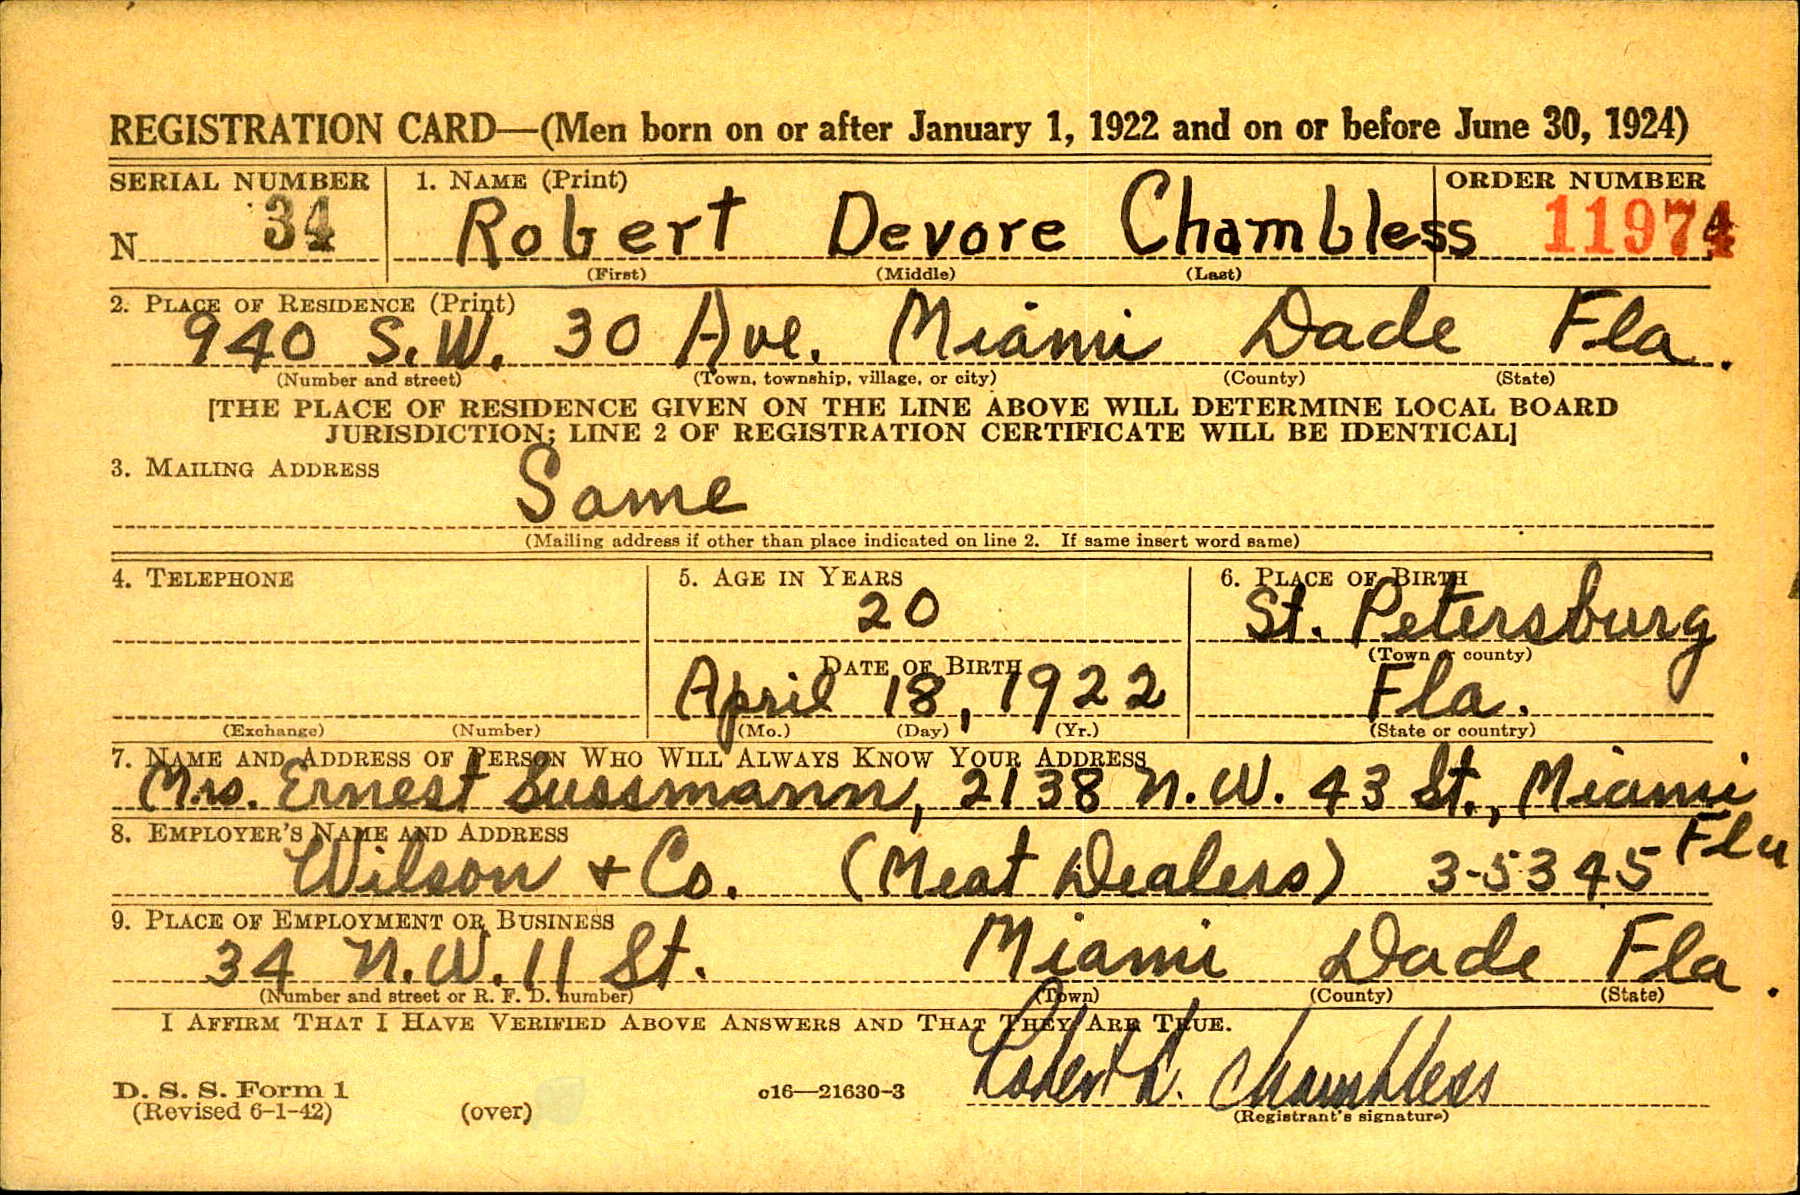 REGISTRATION CARD—(Men born on or after January 1, 1922 and on or before June 30, 1924)
SERIAL NUMBER 1. NAME (Print) ORDER NUMBER
N 34 Robert Devore Chambless 11974
(First) (Middle) (Last)
2. PLACE OF RESIDENCE (Print)
940 S.W. 30 Ave. Miami Dade Fla.
(Number and street) (Town, township, village, or city) (County) (State)
[THE PLACE OF RESIDENCE GIVEN ON THE LINE ABOVE WILL DETERMINE LOCAL BOARD
JURISDICTION; LINE 2 OF REGISTRATION CERTIFICATE WILL BE IDENTICAL]
3. MAILING ADDRESS
Same
(Mailing address if other than place indicated on line 2. If same insert word same)
4. TELEPHONE 5. AGE IN YEARS 6. PLACE OF BIRTH
20 St. Petersburg
DATE OF BIRTH (Town or county)
April 18, 1922 Fla.
(Exchange) (Number) (Mo.) (Day) (Yr.) (State or country)
7. NAME AND ADDRESS OF PERSON WHO WILL ALWAYS KNOW YOUR ADDRESS
Mrs. Ernest Sussmann, 2138 N.W. 43 St., Miami
Fla
8. EMPLOYER'S NAME AND ADDRESS
Wilson + Co. (Meat Dealers) 3-5345
9. PLACE OF EMPLOYMENT OR BUSINESS
34 N.W. 11 St. Miami Dade Fla.
(Number and street or R. F. D. number) (Town) (County) (State)
I AFFIRM THAT I HAVE VERIFIED ABOVE ANSWERS AND THAT THEY ARE TRUE.
Robert D. Chambless
D. S. S. Form 1 c16—21630-3
(Revised 6-1-42) (over) (Registrant's signature)